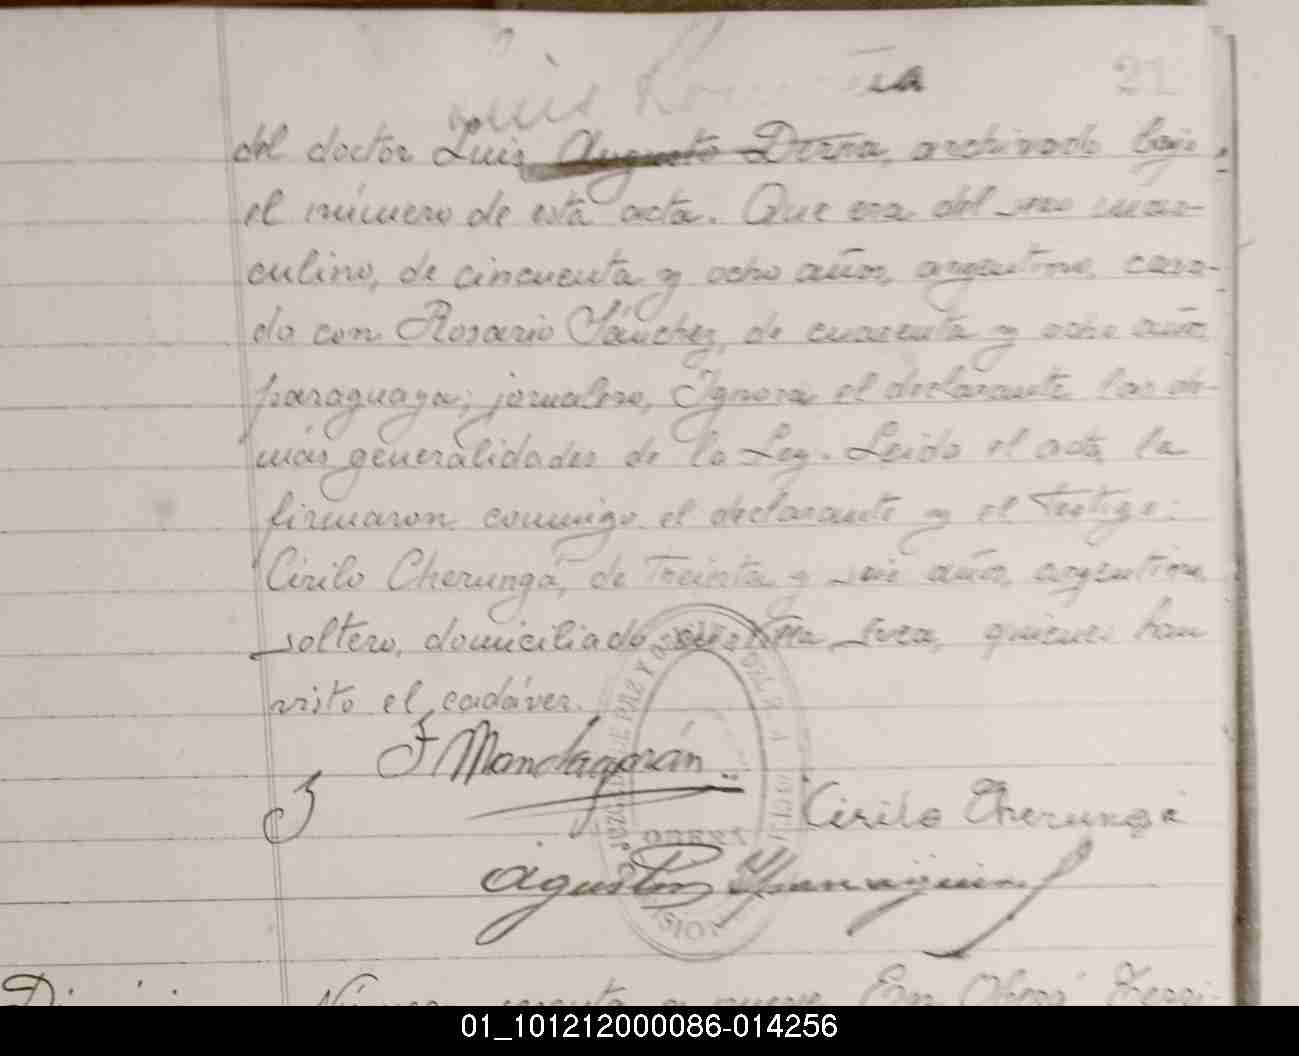 21
del doctor Luis Augusto Derna, archivado bajo
el número de esta acta. Que era del sexo mas-
culino, de cincuenta y ocho años, argentino, casa-
do con Rosario Sánchez, de cuarenta y ocho años
paraguaya; jornalero, Ignora el declarante las de-
más generalidades de la Ley. Leida el acta la
firmaron conmigo el declarante y el testigo:
Cirilo Cherungá, de treinta y seis años, argentino,
soltero, domiciliado en esta quienes han
visto el cadáver.
F Mondagarán
Cirilo Cherunga
Agustin
OBERA
Número cuarenta y nueve En Oberá, Terri-
01_101212000086-014256